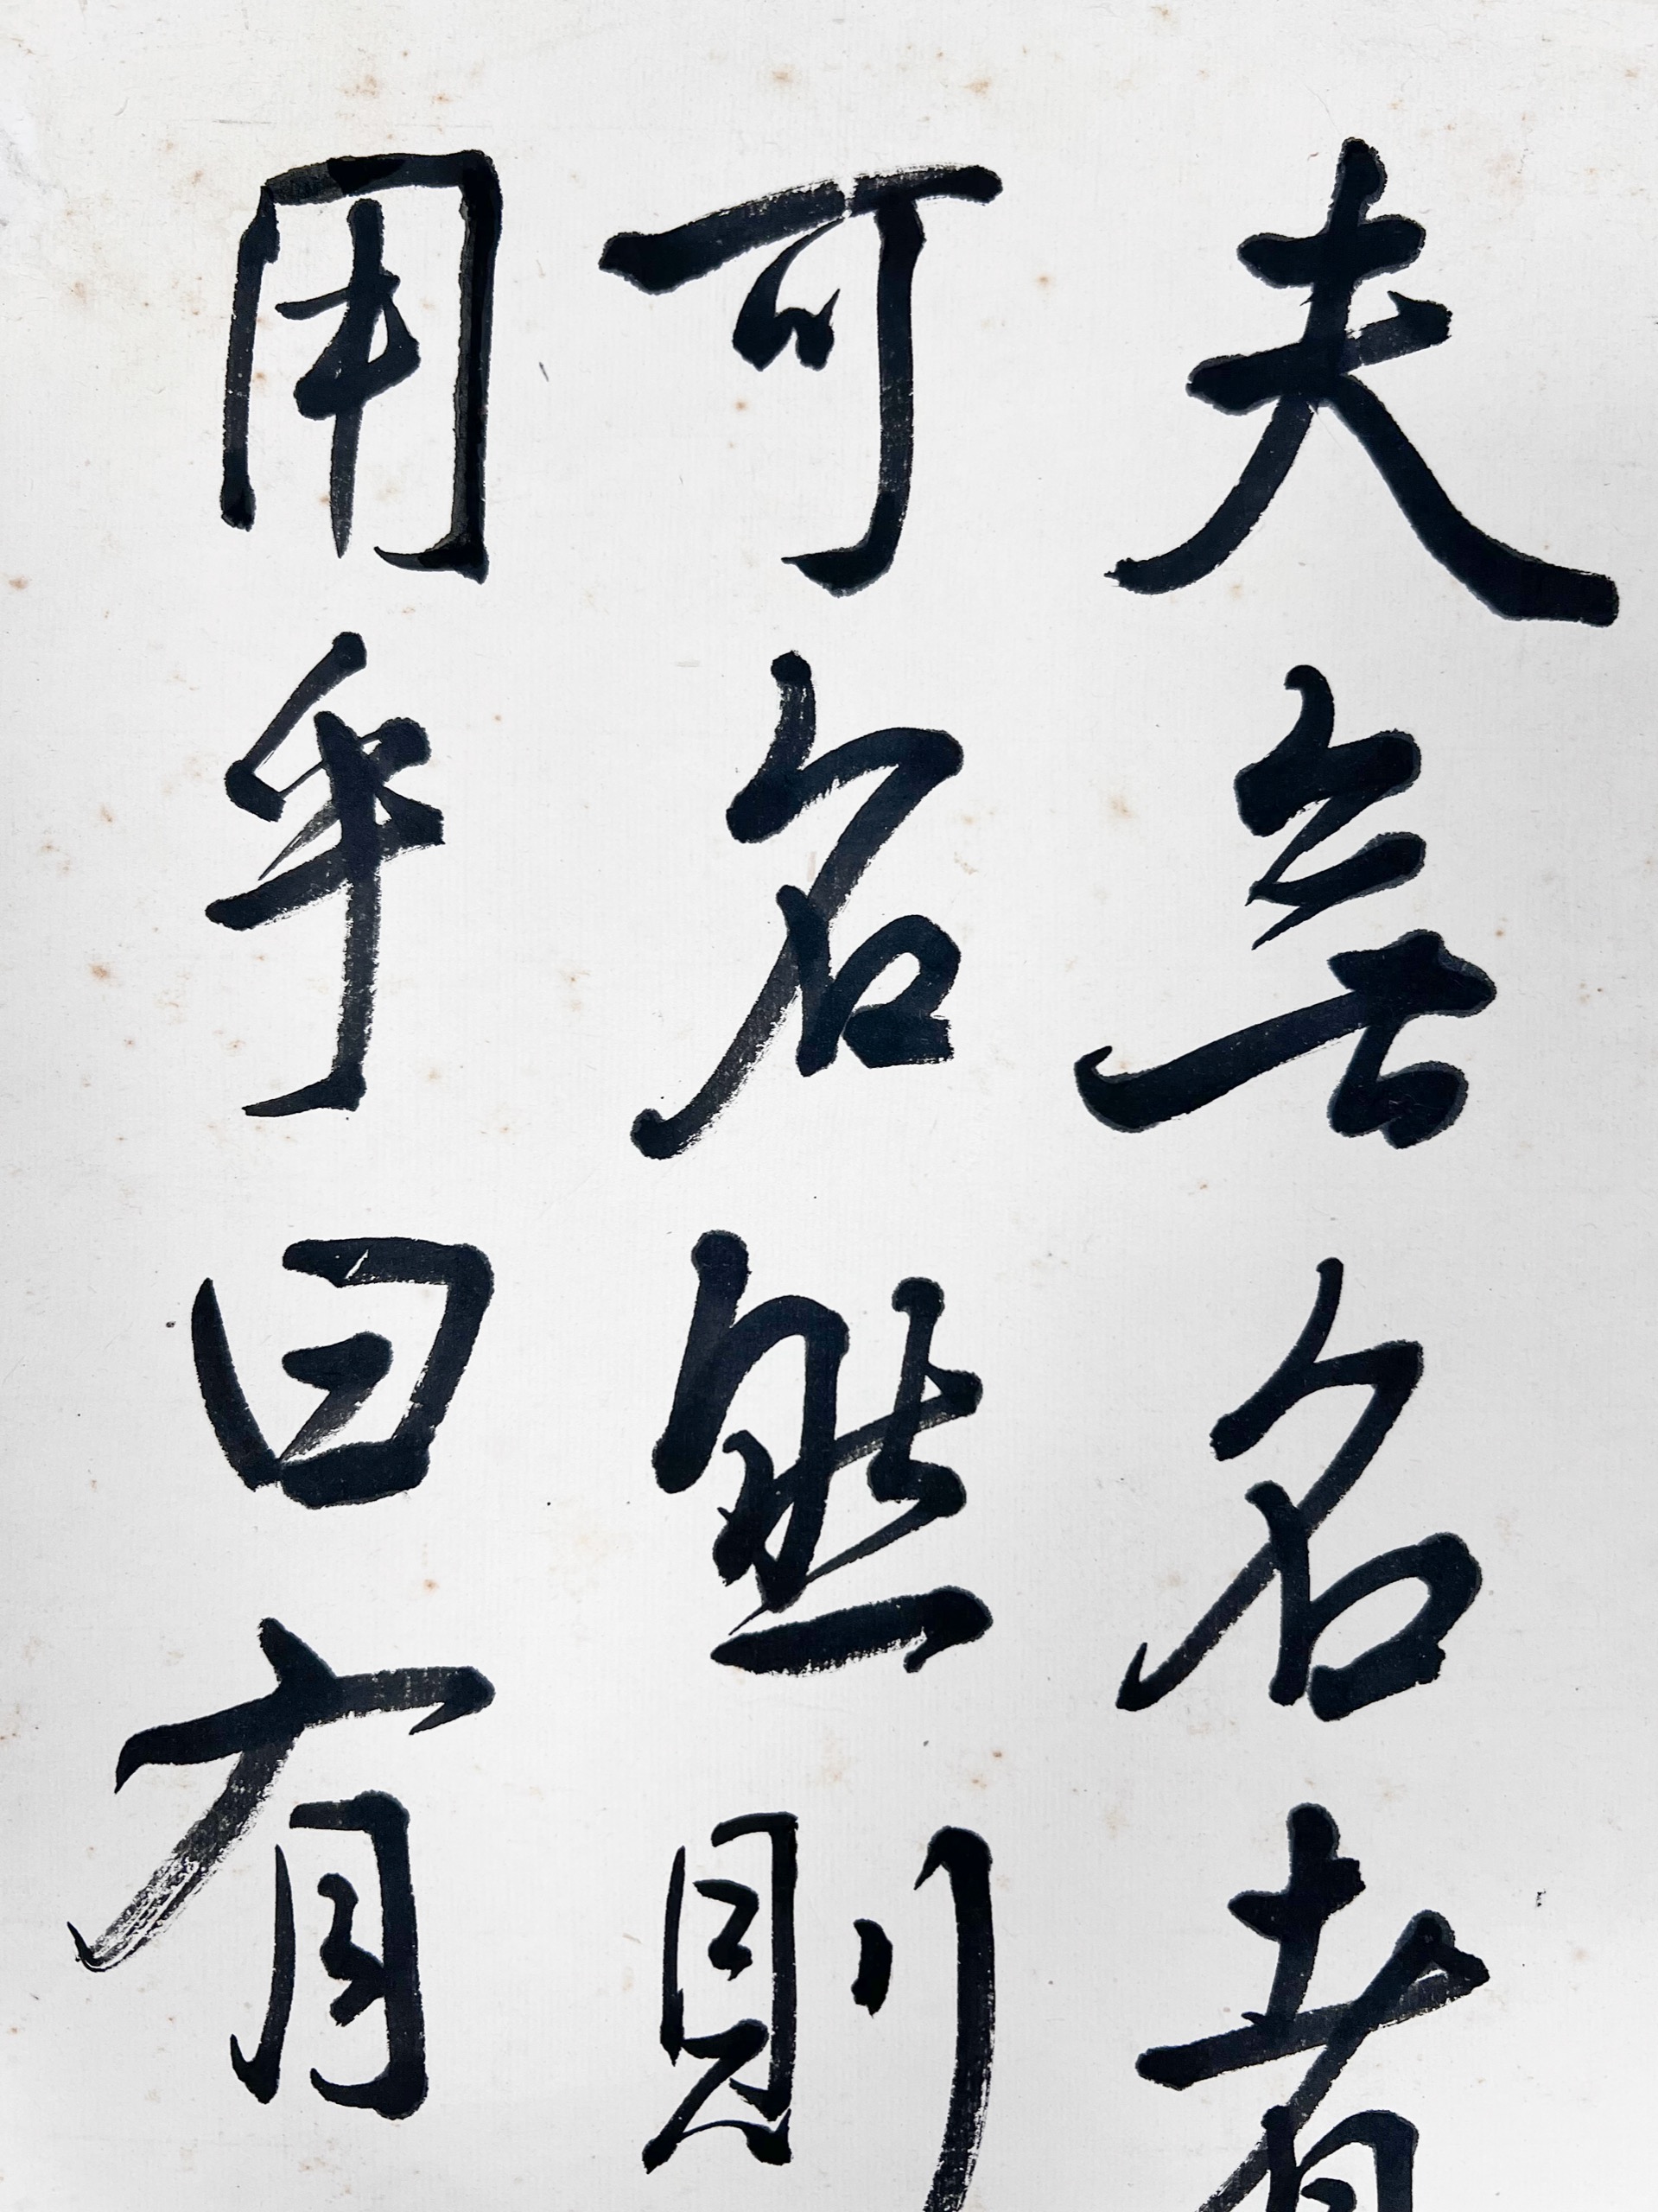 夫無名者
可名然則
用乎曰有